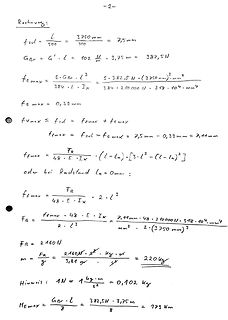 -2-
Rechnung:
f zul = l / 500 = 3750 mm / 500 = 7,5 mm
G Br = G' · l = 102 N/m · 3,75 m = 382,5 N
f 2 max = 5 · G Br · l³ / 384 · E · Ix = 5 · 382,5 N · (3750 mm)³ · mm² / 384 · 210000 N · · 10⁴ mm⁴
f 2 max = 0,39 mm
f vmax ≤ f zul = f 1 max + f 2 max
f 1 max = f zul - f 2 max = 7,5 mm - 0,39 mm = 7,11 mm
f 1 max = FR / 48 · E · Ix · (l - la) · [3 · l² - (l - la)²]
oder bei Radstand la = 0 mm:
f 1 max = FR / 48 · E · Ix · 2 · l³
FR = f 1 max · 48 · E · Ix / 2 · l³ = 7,11 mm · 48 · 210000 N · · 10⁴ mm⁴ / mm² · 2 · (3750 mm)³
FR = 2160 N
m = FR / g = 2160 N · s² · kg · m / 9,81 m · s² = 220 kg
Hinweis: 1N = 1 kg · m / s² = 0,102 kg
M 2 max = G Br · l / 8 = 382,5 N · 3,75 m / 8 = 179 Nm